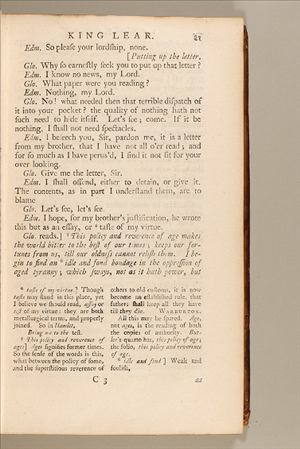 KING LEAR. 21
Edm. So please your lordſhip, none.
[Putting up the letter.
Glo. Why ſo earneſtly ſeek you to put up that letter?
Edm. I know no news, my Lord.
Glo. What paper were you reading?
Edm. Nothing, my Lord.
Glo. No! what needed then that terrible diſpatch of
it into your pocket? the quality of nothing hath not
ſuch need to hide itſelf. Let's ſee; come. If it be
nothing, I ſhall not need ſpectacles.
Edm. I beſeech you, Sir, pardon me, it is a letter
from my brother, that I have not all o'er read; and
for ſo much as I have perus'd, I find it not fit for your
over looking.
Glo. Give me the letter, Sir.
Edm. I ſhall offend, either to detain, or give it.
The contents, as in part I underſtand them, are to
blame
Glo. Let's ſee, let's ſee.
Edm. I hope, for my brother's juſtification, he wrote
this but as an eſſay, or taſte of my virtue.
Glo. reads.] This policy and reverence of age makes
the world bitter to the beſt of our times; keeps our for-
tunes from us, till our oldneſs cannot reliſh them. I be-
gin to find an idle and fond bondage in the oppreſſion of
aged tyranny; which ſways, not as it hath power, but
taſte of my virtue.] Though
taſte may ſtand in this place, yet
I believe we ſhould read, aſſay or
teſt of my virtue: they are both
metallurgical terms, and properly
joined. So in Hamlet,
Bring me to the teſt.
This policy and reverence of
ages] Ages ſignifies former times.
So the ſenſe of the words is this,
what between the policy of ſome,
and the ſuperſtitious reverence of
others to old cuſtoms, it is now
become an eſtabliſhed rule, that
fathers ſhall keep all they have
till they die. WARBURTON.
All this may be ſpared. Age,
not ages, is the reading of both
the copies of authority. But-
ler's quarto has, this policy of age;
the folio, this policy and reverence
of age.
idle and fond] Weak and
fooliſh,
C 3 as